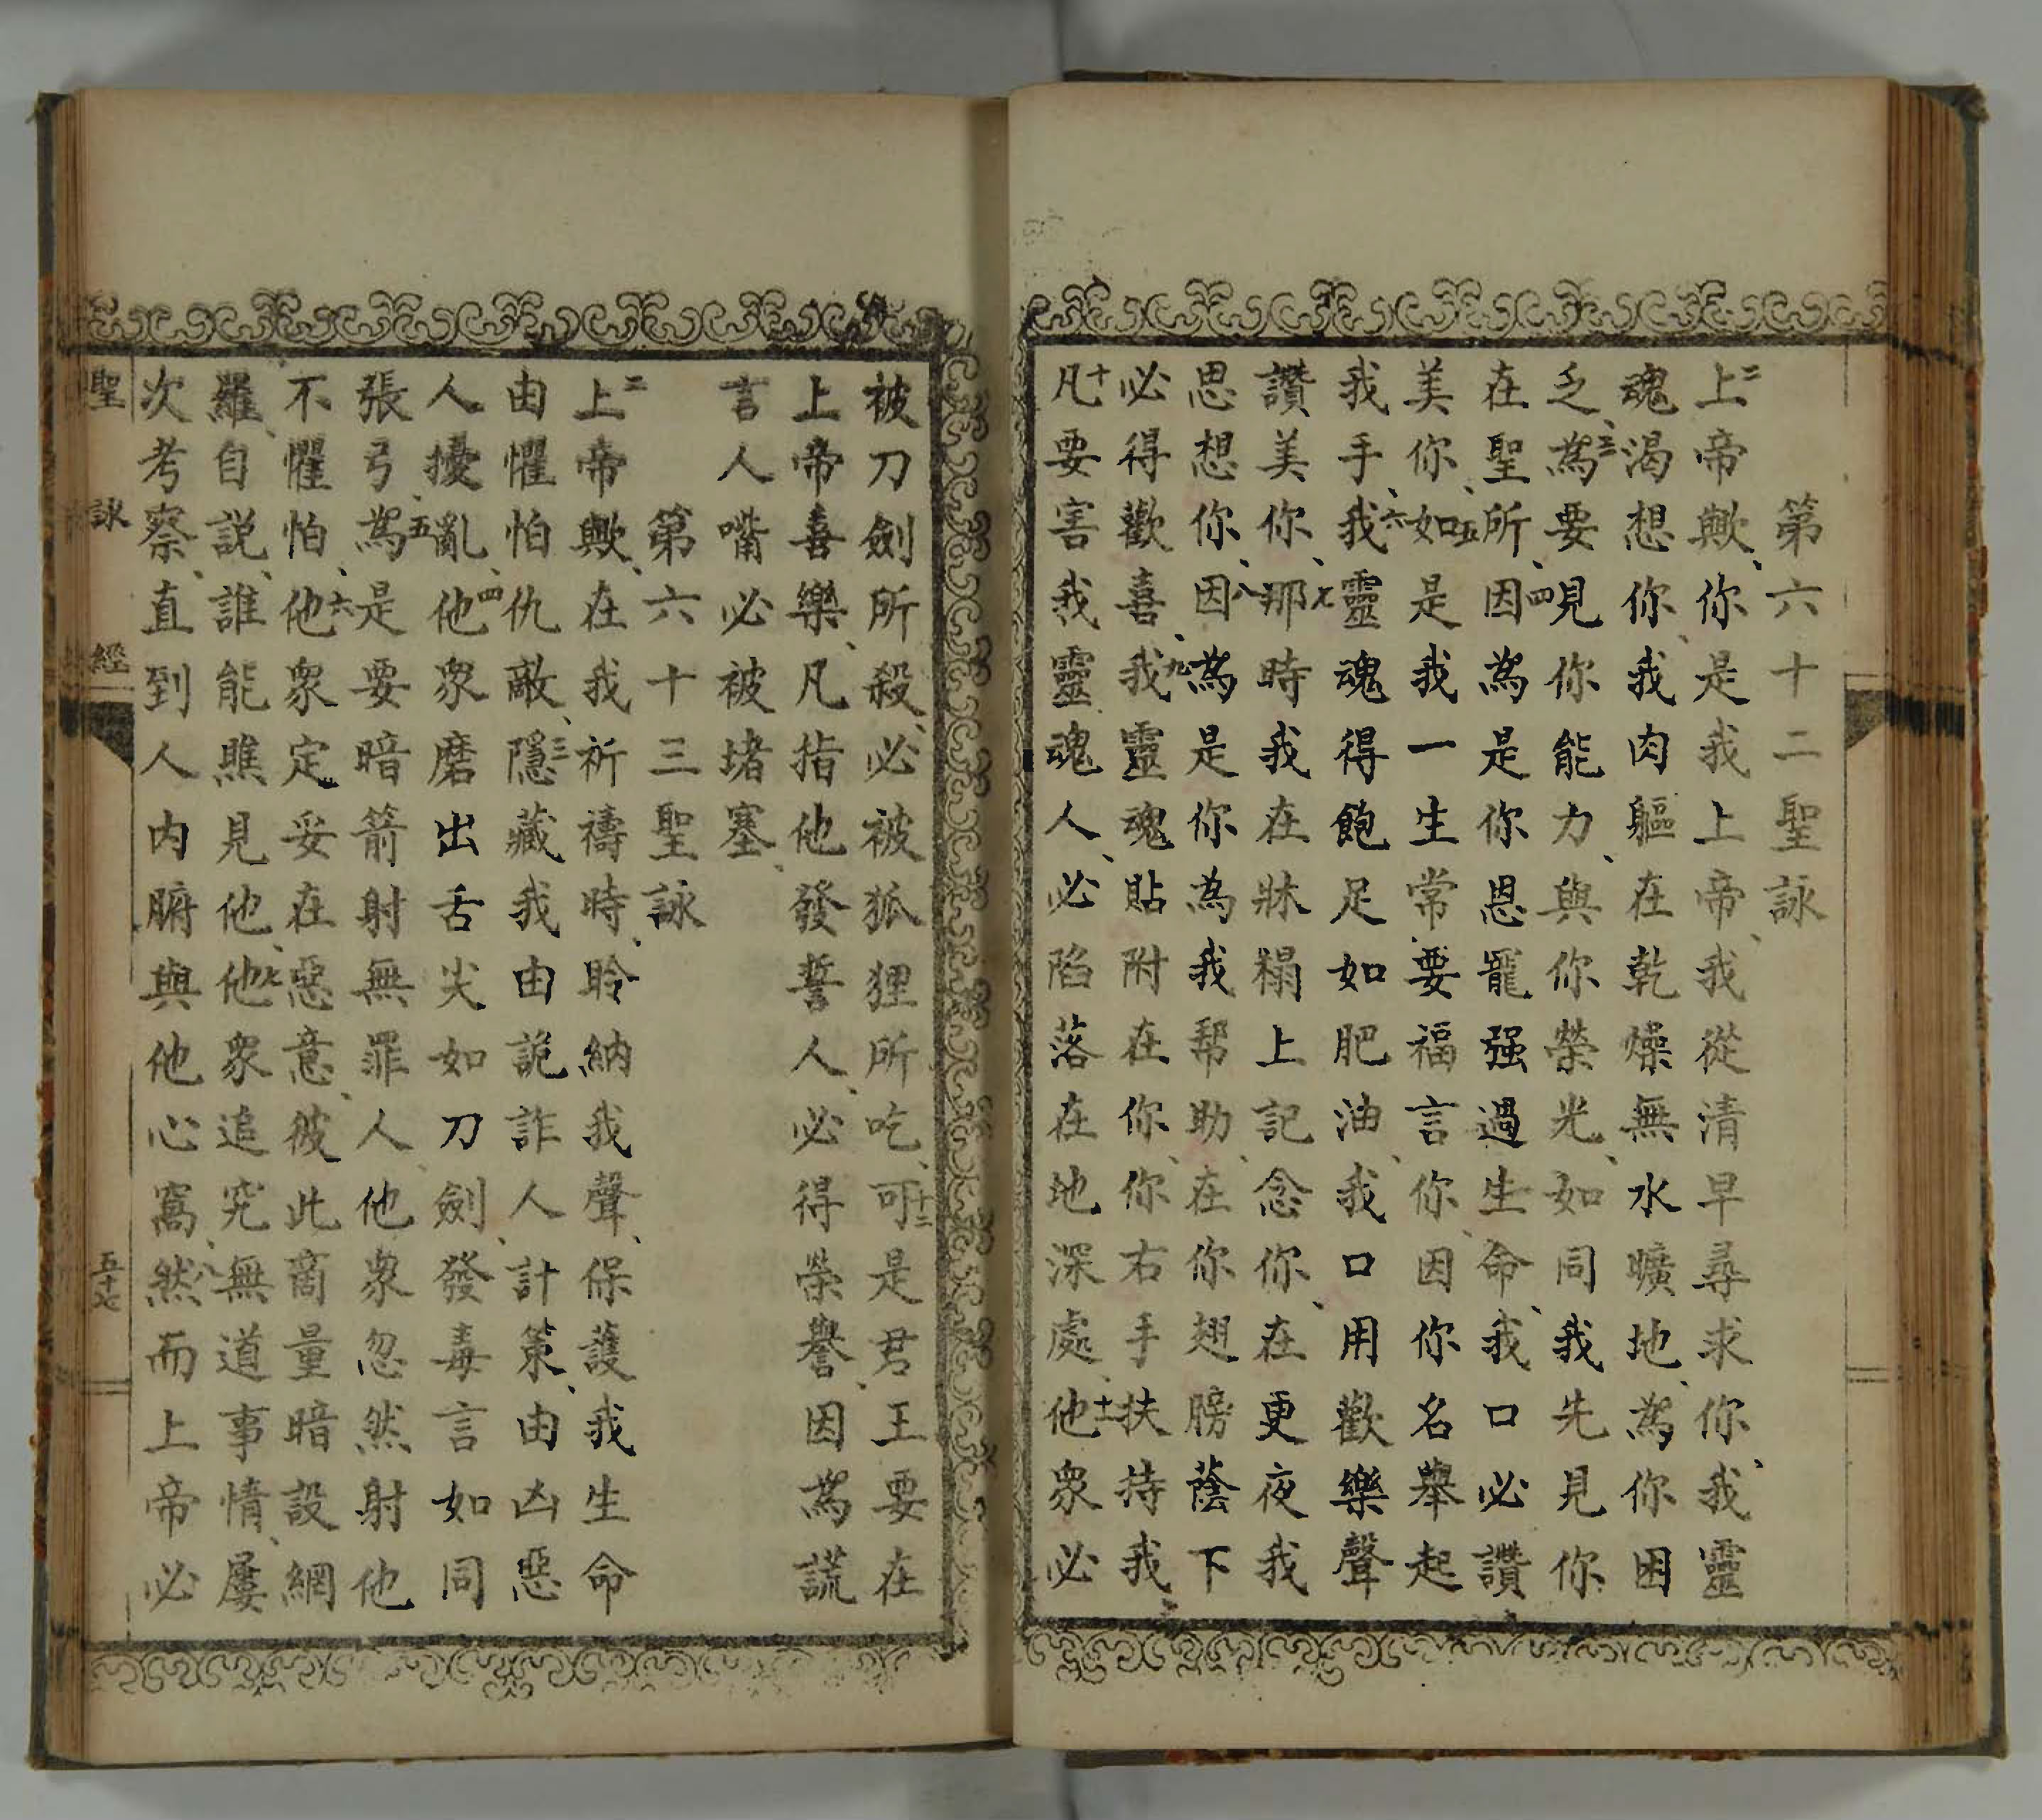 第六十二聖詠
二上帝歟、你是我上帝、我從清早尋求你、我靈
魂渴想你、我肉軀在乾燥無水曠地、為你困
乏、三為要見你能力、與你榮光、如同我先見你
在聖所、四因為是你恩寵强過生命、我口必讚
美你、五如是我一生常要福言你、因你名舉起
我手、六我靈魂得飽足如肥油、我口用歡樂聲
讚美你、七那時我在牀榻上記念你、在更夜我
思想你、八因為是你為我幇助、在你翅膀蔭下
必得歡喜、九我靈魂貼附在你、你右手扶持我
十凡要害我靈魂人、必陷落在地深處、十一他衆必
被刀劍所殺、必被狐狸所吃、十二可是君王要在
上帝喜樂、凡指他發誓人、必得榮譽、因為謊
言人嘴必被堵塞、
第六十三聖詠
二上帝歟、在我祈禱時、聆納我聲、保護我生命
由懼怕仇敵、三隱藏我由詭詐人計策、由凶惡
人擾亂、四他衆磨出舌尖如刀劍、發毒言如同
張弓、五為是要暗箭射無罪人、他衆忽然射他
不懼怕、六他衆定妥在惡意、彼此商量暗設網
羅、自説、誰能瞧見他、七他衆追究無道事情、屢
次考察、直到人内腑與他心窩、八然而上帝必
聖詠經
五十七